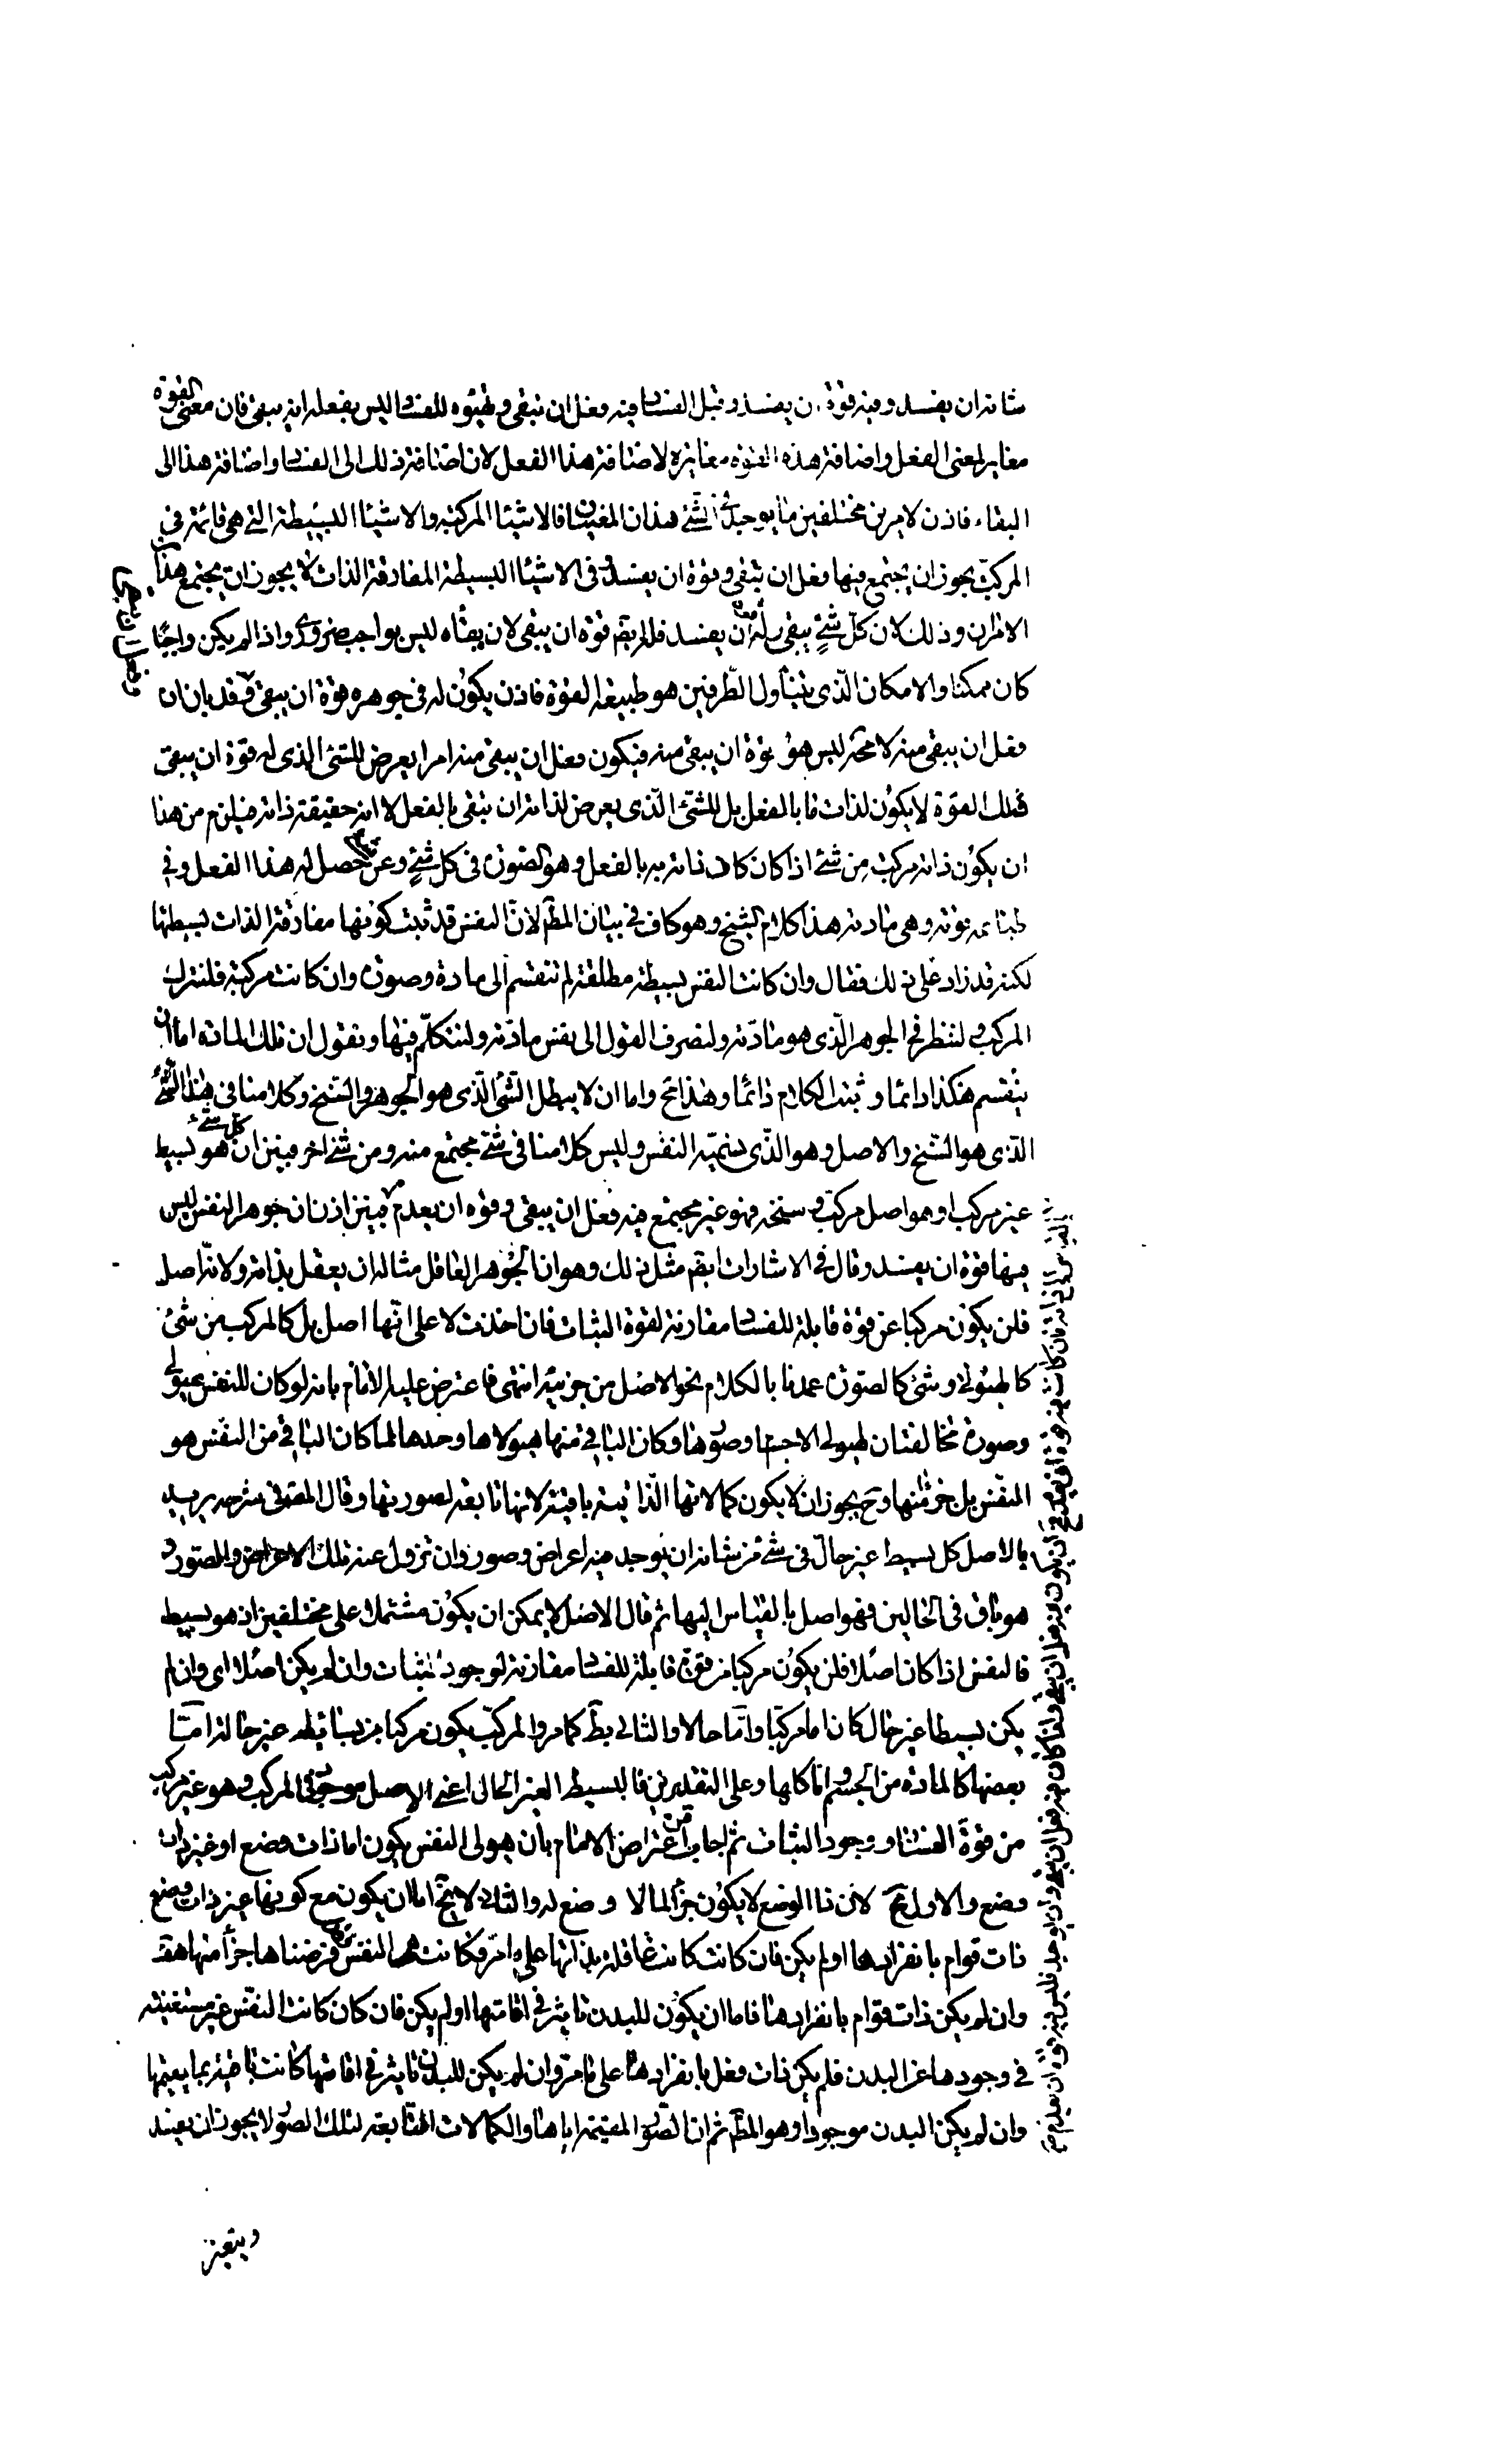 شانه ان يفسد وفيه قوة ان يفسد وقبل الفساد فيه فعل ان يبقى وتهيؤه للفساد ليس بفعله انه يبقى فان معنى القوة
مغاير لمعنى الفعل واضافة هذه القوة مغايرة لاضافة هذا الفعل لان اضافة ذلك الى الفساد واضافة هذا الى
البقاء فاذن لامرين مختلفين ما يوجد في الشئ هذان المعنيان فالاشياء المركبة والاشياء البسيطة التي هي قائمة في
المركب يجوز ان يجتمع فيها فعل ان يبقى وقوة ان يفسد وفى الاشياء البسيطة المفارقة الذات لا يجوز ان يجتمع هذا
الامران وذلك لان كل شئ يبقى وله قوة ان يفسد فله ايضم قوة ان يبقى لان بقاه ليس بواجب ضرورى واذا لم يكن واجبا
كان ممكنا والامكان الذى يتناول الطرفين هو طبيعة القوة فاذن يكون له في جوهره قوة ان يبقى وقد بان ان
فعل ان يبقى منه لا محة ليس هو قوة ان يبقى منه فيكون فعل ان يبقى منه امرا يعرض للشئ الذى له قوة ان يبقى
فتلك القوة لا يكون لذات ما بالفعل بل للشئ الذى يعرض لذاته ان يبقى بالفعل لا انه حقيقة ذاته فيلزم من هذا
ان يكون ذاته مركبة من شئ اذا كان كان ذاته به بالفعل وهو الصورة في كل شئ وعن شئ حصل له هذا الفعل وفي
طباعه قوته وهى مادته هذا كلام الشيخ وهو كاف في بيان المطم لان النفس قد ثبت كونها مفارقة الذات بسيطتها
لكنه قد زاد على ذلك فقال وان كانت النفس بسيطة مطلقة لم تنقسم الى مادة وصورة وان كانت مركبة فلنترك
المركب ولننظر في الجوهر الذى هو مادته ولنصرف القول الى نفس مادته ولنتكلم فيها ونقول ان تلك المادة اما ان
ينقسم هكذا دائما ويثبت الكلام دائما وهذا مح واما ان لا يبطل الشئ الذى هو الجوهر والسنخ وكلامنا فى هذا الشئ
الذى هو السنخ والاصل وهو الذى نسميه النفس وليس كلامنا في شئ مجتمع منه ومن شئ اخر فبين ان كل شئ هو بسيط
غير مركب او هو اصل مركب وسنخه فهو غير مجتمع فيه فعل ان يبقى وقوة ان يعدم فبين اذن ان جوهر النفس ليس
فيها قوة ان يفسد وقال في الاشارات ايضم مثل ذلك وهو ان الجوهر العاقل مثاله ان يعقل بذاته ولانه اصل
فلن يكون مركبا عن قوة قابلة للفساد مقارنة لقوة الثبات فان اخذت لا على انها اصل بل كالمركب من شئ
كالهيولي وشئ كالصورة عمدنا بالكلام نحو الاصل من جزئيه انتهى فاعترض عليه الامام بانه لو كان للنفس هيولي
وصورة مخالفتان لهيولي الاجسام وصورها وكان الباقي منها هيولاها وحدها لما كان الباقي من النفس هو
النفس بل جزء منها وح يجوز ان لا يكون كمالاتها الذاتية باقية لانها تابعة لصورتها وقال المحقق في شرحه يريد
بالاصل كل بسيط غير حال في شئ من شانه ان يوجد فيه اعراض وصور وان تزول عنه تلك الاعراض والصور و
هو باق فى الحالين فهو اصل بالقياس اليها ثم قال الاصل لا يمكن ان يكون مشتملا على مختلفين اذ هو بسيط
فالنفس اذا كان اصلا فلن يكون مركبا من قوة قابلة للفساد مقارنة لوجود الثبات وان لم يكن اصلا اى وان لم
يكن بسيطا غير حال كان اما مركبا واما حالا والتالي بط كما مر والمركب يكون مركبا من بسائط غير حالة اما
بعضها كالمادة من الجسم واما كلها وعلى التقديرين فالبسيط الغير الحال اعني الاصل موجود في المركب وهو غير مركب
من قوة الفساد ووجود الثبات ثم اجاب عن اعتراض الامام بان هيولى النفس يكون اما ذات وضع او غير ذات
وضع والاول مح لان ذا الوضع لا يكون جزأ لما لا وضع له والثاني لا يخ اما ان يكون مع كونها غير ذات وضع
ذات قوام بانفرادها او لم يكن فان كانت كانت عاقلة بذاتها على ما مر وكانت هى النفس وقد فرضناها جزأ منها هف
وان لم يكن ذات قوام بانفرادها فاما ان يكون للبدن تاثير في اقامتها او لم يكن فان كان كانت النفس غير مستغنية
في وجودها عن البدن فلم يكن ذات فعل بانفرادها على ما مر وان لم يكن للبدن تاثير في اقامتها كانت باقية بما يقيمها
وان لم يكن البدن موجودا وهو المطم ثم ان الصور المقيمة اياها والكمالات التابعة لتلك الصور لا يجوز ان يفسد
ويتغير